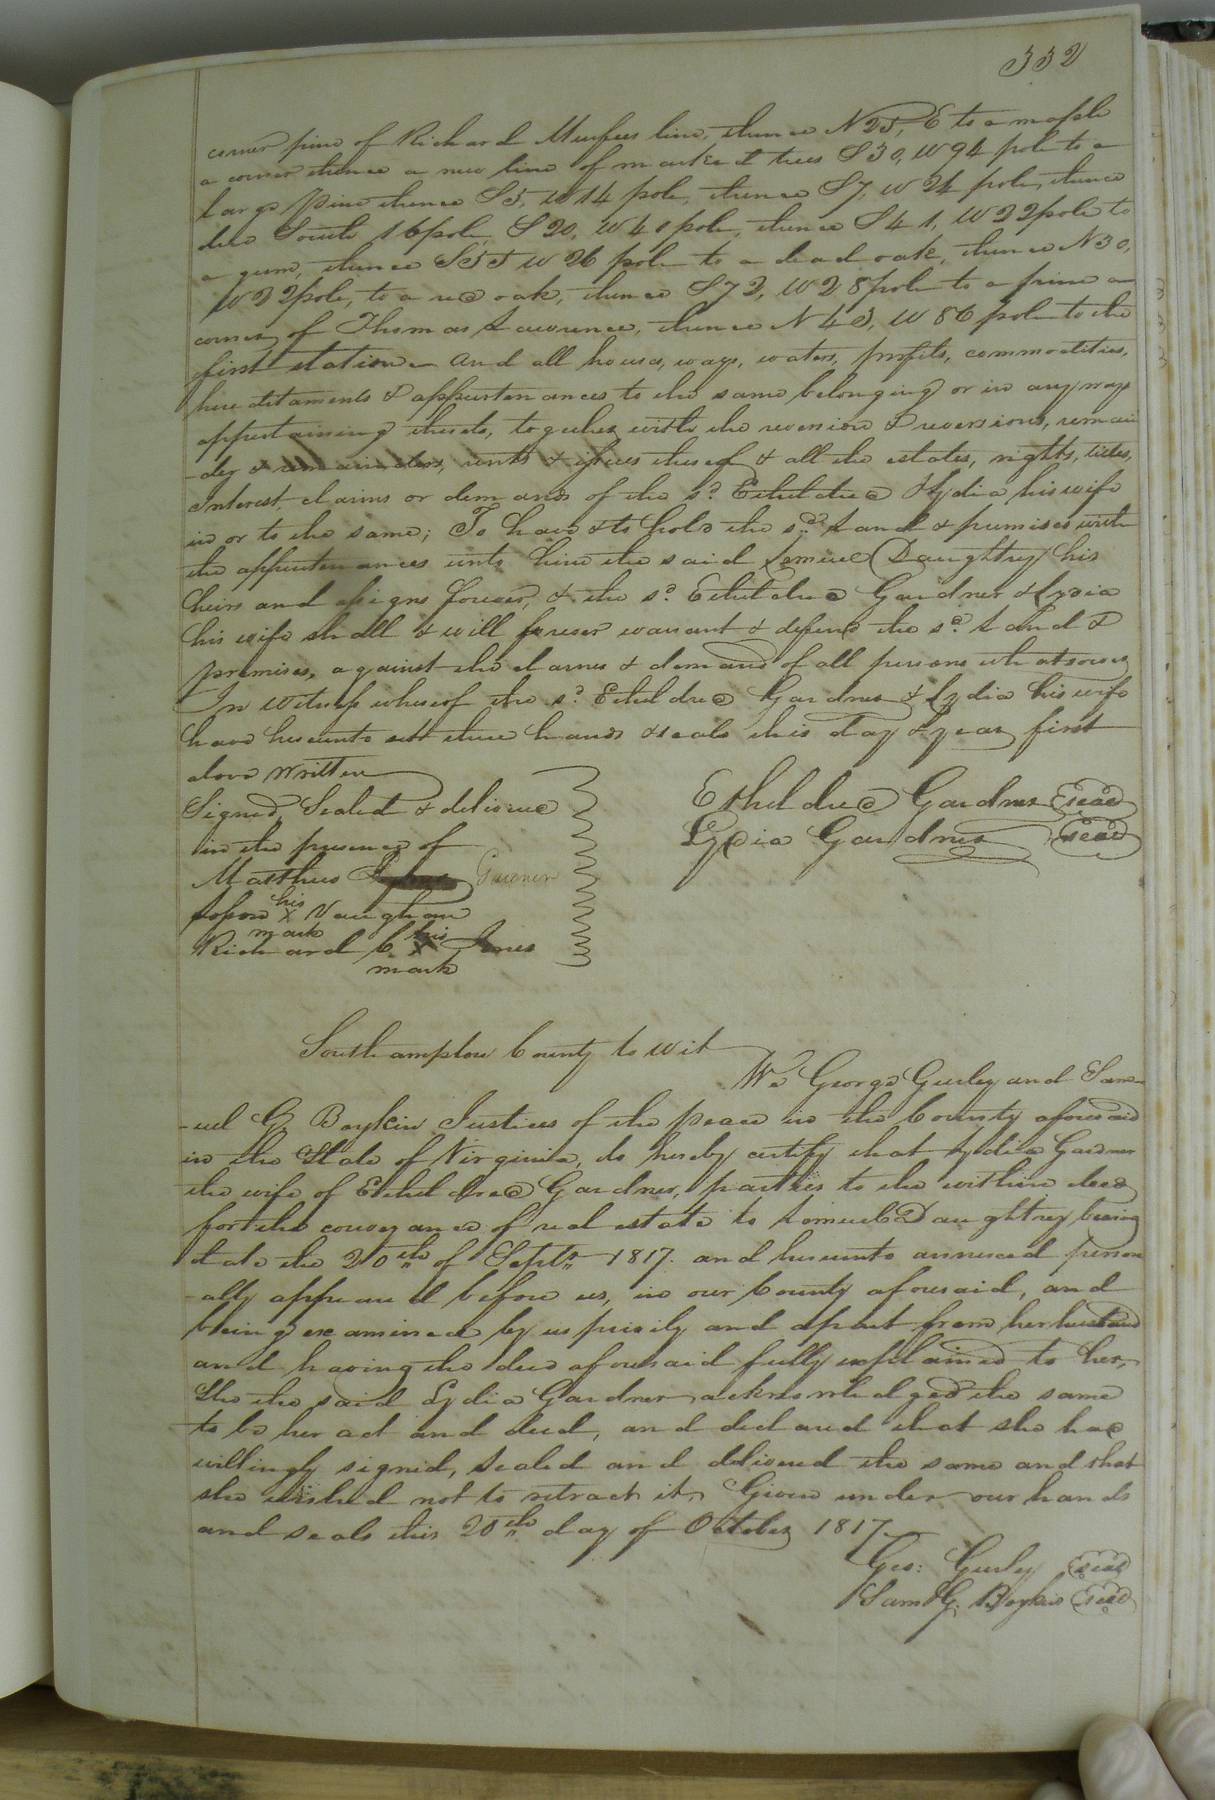 332
corner pine of Richard Murfees line, thence N25, E to a maple
a corner thence a new line of marked trees S30, W94 pole to a
large Pine thence S5, W14 pole, thence S7, W24 pole, thence
due South 16 pole, S20, W40 pole, thence S41, W22 pole to
a gum, thence S35 W26 pole to a dead oak, thence N30,
W22 pole, to a red oak, thence S72, W28 pole to a pine a
corner of Thomas Lawrence, thence N43, W86 pole to the
first station and all houses, ways, waters, profits, commodities,
hereditaments & appurtenances to the same belonging or in any ways
appertaining thereto, together with the revension & reversions, remain
-der & remainders, rents & issues thereof & all the estates, rights, titles,
interest, claims or demands of the sd. Etheldred & Lydia his wife
in or to the same; To have & to hold the sd. land & premises with
the appurtenances unto him the said Lemuel Daughtrey his
heirs and assigns forever, & the sd. Etheldred Gardner & Lydia
his wife shall & will forever warrant & defend the sd. land &
premises, against the claims & demands of all persons whatsoever
In witness whereof the sd. Etheldred Gardner & Lydia his wife
have hereunto sett their hands & seals this day & year first
above written
Signed, Sealed & delivered
in the presence of
Etheldred Gardner seal
Lydia Gardner seal
Matthew Gardner
his
Vaughan
mark
his
Richard C X Jones
mark
Southampton County to wit
We George Gurley and Sam-
-uel G. Boykin Justices of the peace in the County aforesaid
in the State of Virginia, do hereby certify that Lydia Gardner
the wife of Etheldred Gardner, parties to the within deed
for the conveyance of real estate to Lemuel Daughtrey bearing
date the 20th of Septr 1817. and hereunto annexed person
-ally appeared before us, in our County aforesaid, and
being examined by us privily and apart from her husband
and having the deed aforesaid fully explained to her,
She the said Lydia Gardner acknowledged the same
to be her act and deed, and declared that she had
willingly signed, sealed and delivered the same and that
she wished not to retract it, Given under our hands
and seals this 20th day of October 1817
Geo: Gurley seal
Saml G. Boykin seal